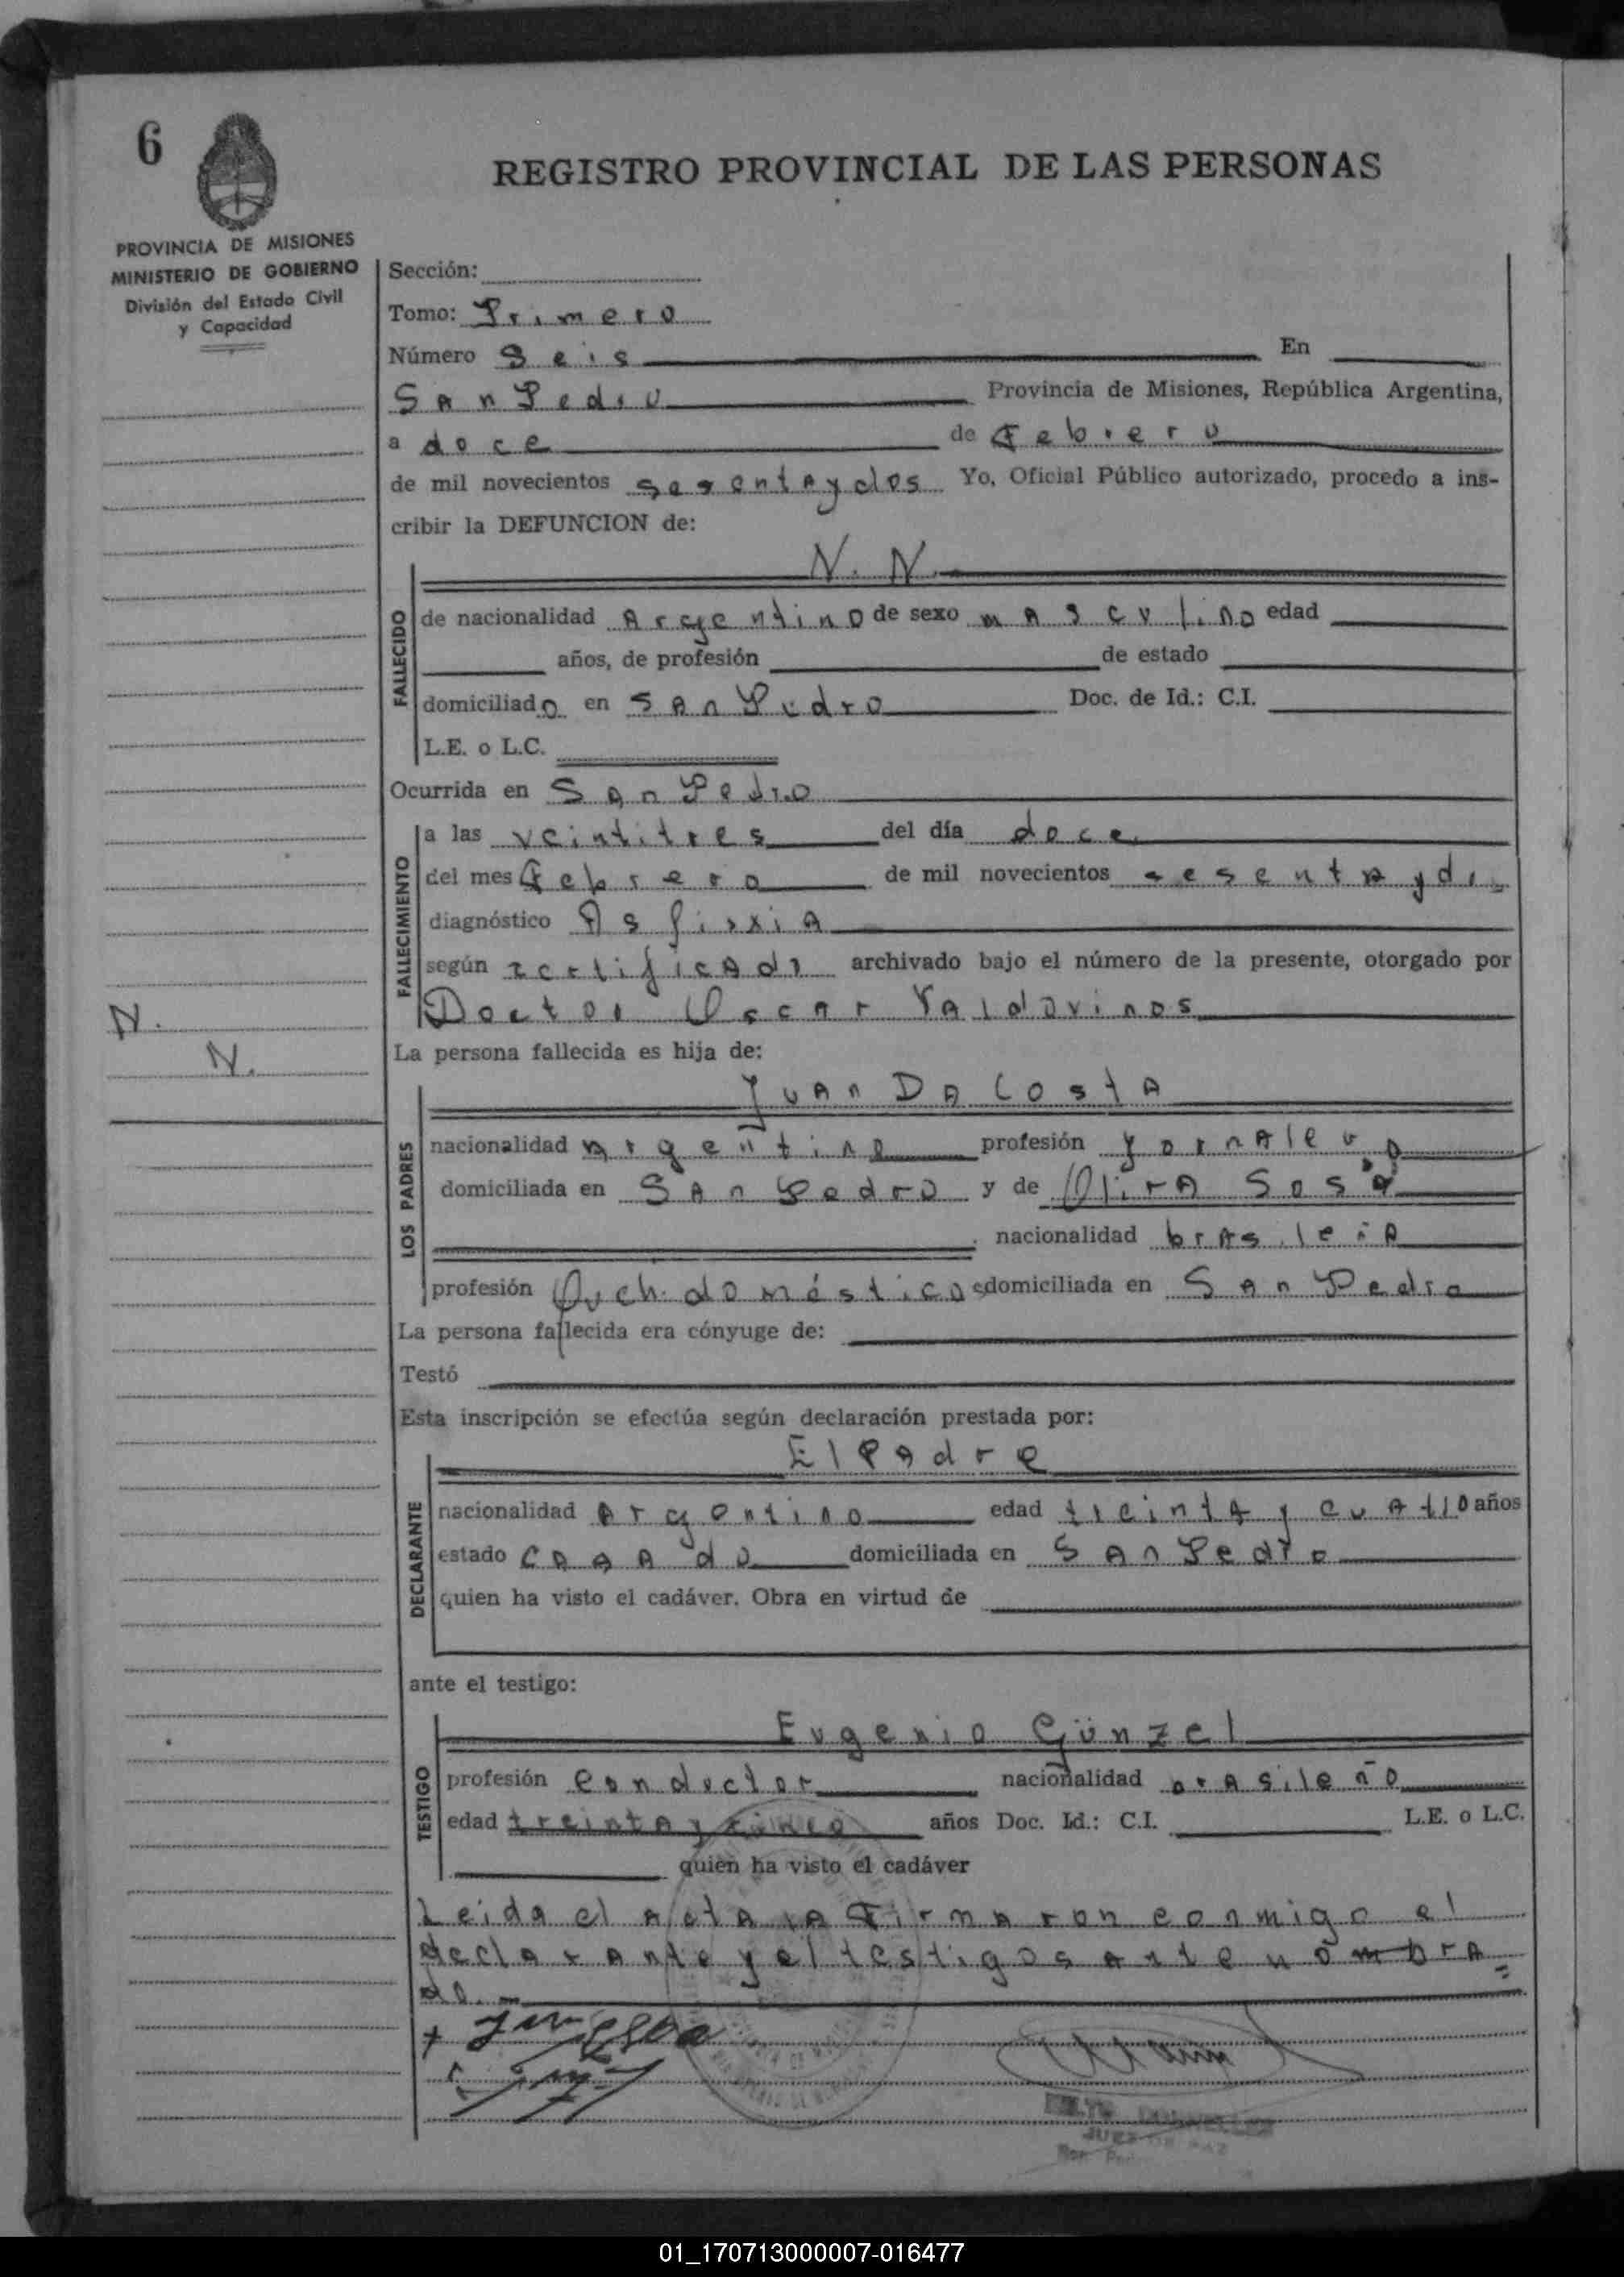 6
REGISTRO PROVINCIAL DE LAS PERSONAS
PROVINCIA DE MISIONES
MINISTERIO DE GOBIERNO
División del Estado Civil
y Capacidad
Sección:
Tomo: Primero
Número Seis En
San Pedro Provincia de Misiones, República Argentina,
a doce de Febrero
de mil novecientos sesentaydos Yo, Oficial Público autorizado, procedo a ins-
cribir la DEFUNCION de:
N. N.
FALLECIDO
de nacionalidad Argentino de sexo masculino edad
años, de profesión de estado
domiciliado en San Pedro Doc. de Id.: C.I.
L.E. o L.C.
Ocurrida en San Pedro
FALLECIMIENTO
a las veintitres del día doce
del mes Febrero de mil novecientos sesentaydo
diagnóstico Asfixxia
según certificado archivado bajo el número de la presente, otorgado por
Doctor Oscar Valdovinos
N.
N.
La persona fallecida es hija de:
Juan Da Costa
LOS PADRES
nacionalidad argentino profesión yornalero
domiciliada en San Pedro y de Olira Sosa
nacionalidad brasileña
profesión Quehdomésticos domiciliada en San Pedro
La persona fallecida era cónyuge de:
Testó
Esta inscripción se efectúa según declaración prestada por:
El Padre
DECLARANTE
nacionalidad Argentino edad treinta y cuatro años
estado casado domiciliada en San Pedro
quien ha visto el cadáver. Obra en virtud de
ante el testigo:
Eugenio Günzel
TESTIGO
profesión conductor nacionalidad brasileño
edad treinta y cinco años Doc. Id.: C.I. L.E. o L.C.
quien ha visto el cadáver
Leida el acta la Firmaron conmigo el
declarante y el testigos antenombra=
do.
JUEZ DE PAZ
01_170713000007-016477